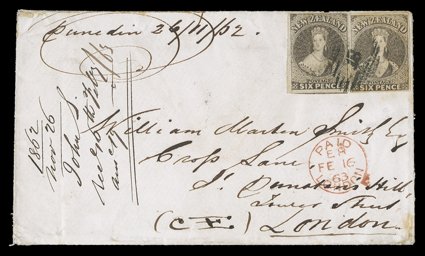 Dunedin 26/11/62.
NEW ZEALAND
SIX PENCE
NEW ZEALAND
SIX PENCE
1862
Nov 26
John S.
William Martin Smith Esq
Cross Lane
St. Dunstans Hill,
Tower Street
London.
PAID
FE 16
63